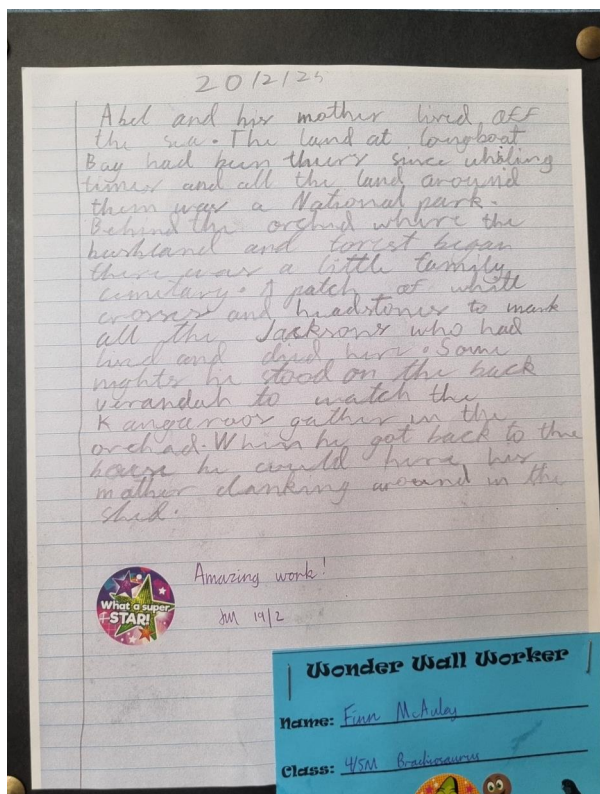 20/2/25
Abel and his mother lived off
the sea. The land at Longboat
Bay had been theirs since whaling
times and all the land around
them was a National park.
Behind the orchid where the
bushland and forest began
there was a little family
cemitary. A patch of white
crosses and headstones to mark
all the Jacksons who had
lived and died here. Some
nights he stood on the back
verandah to watch the
Kangaroos gather in the
orchad. When he got back to the
house he could here his
mother clanking around in the
shed.
Amazing work!
19/2
What a super
STAR!
Wonder Wall Worker
Name: Finn McAuley
Class: 4/5M Brachiosaurus